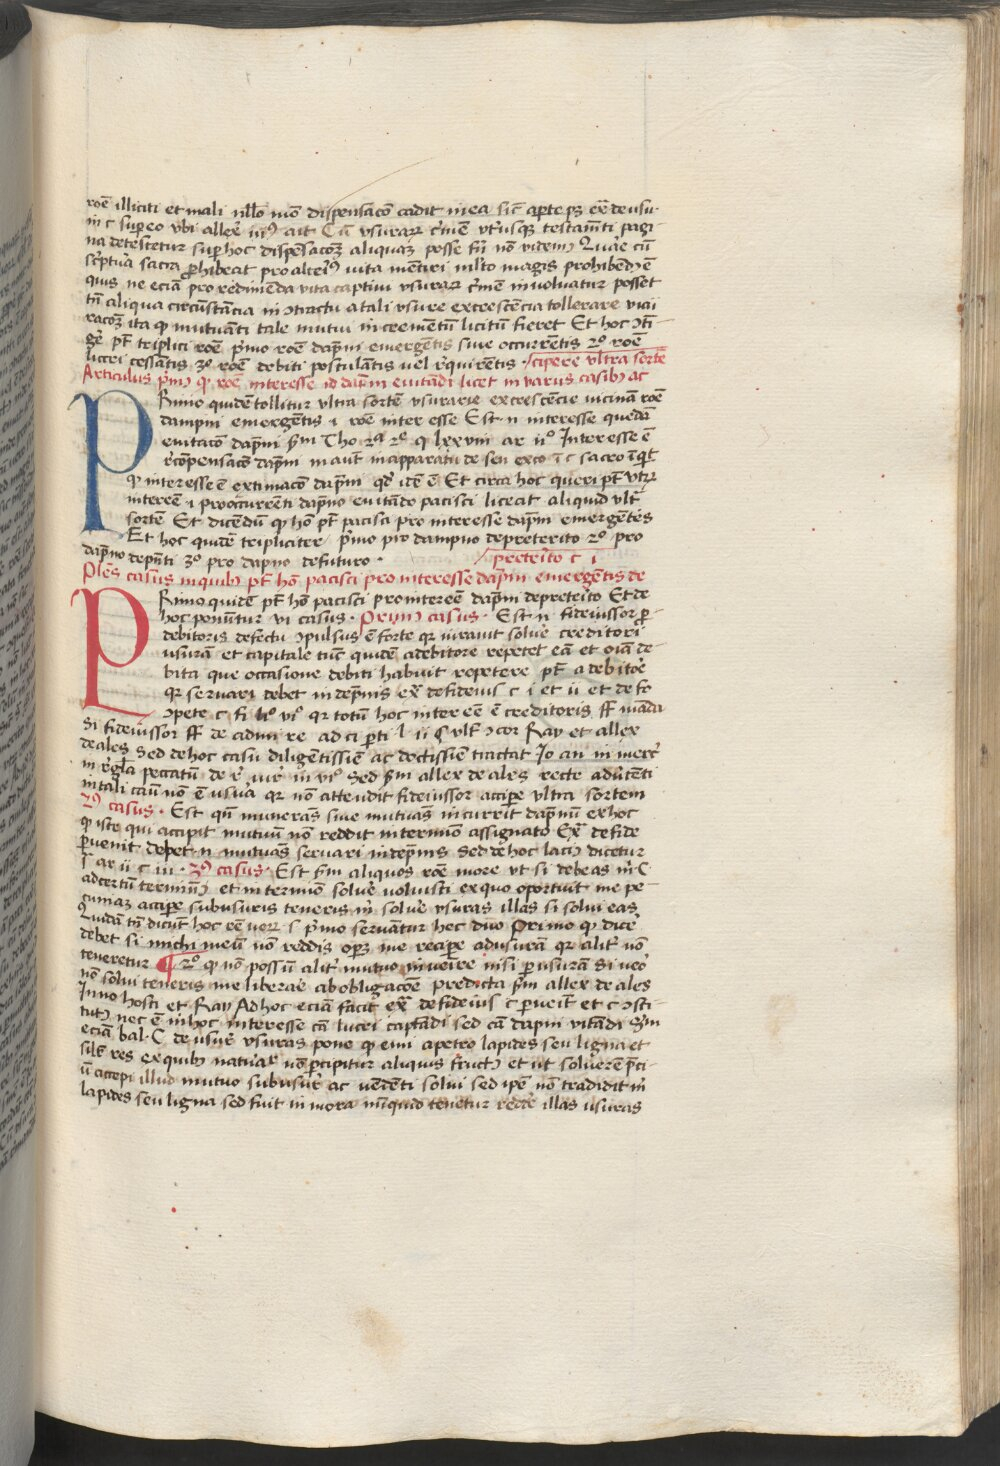 roē illiciti et mali nllo mō dispensacō cadit in ea sic̄ aperte pꝫ ex̄ de usu-
in c super eo vbi allex̄ iijꝰ ait Cū usuraꝝ c̄men vt̄usqꝫ testam̄ti pagi-
na detestetur super hoc dispēsacōeꝫ aliquaꝫ posse fi̅ nō videmꝰ Quae cū
sc̄ptura sacra ꝓhibeat pro alterꝰ vita mentiri ml̄to magis prohibendꝰ ē
quis ne eciam pro redimenda vita captiui vsuraꝝ c̄mē inuoluatur posset
tn̄ aliqua circūstancia in ꝯtractu a tali vsure excrescēcia tollerare vicii
racōeꝫ ita ꝙ mutuāti tale mutui incrementū licitū fieret Et hoc ꝯtī-
gē pt̄ triplici roē p̄mo roē dāpni emergētis siue occurrentis 2º roē
lucri cessantis 3º roē debiti postulātis vel req̄uirentis · cipere vltra sortē
Articulus p̄mꝰ ꝙ roē interesse id dāpni euitādi licet in variis casibꝰ ac
Primo quidē tollitur vltra sortē vsurarie excrescēcie vicinā roē
dampni emergētis i roē inter esse Est n̄ interesse quedā
euitacō dāpni s̄m Tho 2ª 2º q lxxviii ar iiº Interesse ē
recōpensacō dāpni in aut̄ in apparatu de sen exco
ꝙ interesse ē extimacō dāpni qd̄ idē ē Et circa hoc queri pt̄ vtꝝ
intereē i pro occurrenti dāpno euitādo pacisci liceat aliquid vltͣ
sortē Et dicendū ꝙ hō pt̄ pacisci pro interesse dāpni emergētis
Et hoc quidē tripliciter p̄mo pro dampno de preterito 2º pro
dāpno de pn̄ti 3º pro dāpno de futuro · preterito c i
Ples casus in quibꝰ pt̄ hō pacisci pro interesse dāpni emergētis de
Primo quidē pt̄ hō pacisci pro intereē dāpni de preterito Et de
hoc ponūtur vi casus · Primꝰ casus · Est n̄ fideiussor ꝓ-
debitoris defectu ꝯpulsus ē forte qꝛ iurauit soluē creditori
usurā et capitale tūc quidē a debitore repetet eā et oīa de-
bita que occasione debiti habuit repetere pt̄ a debitore
qꝛ seruari debet indēpnis ex̄ de fideius c i et ii et de fo
ꝯpete c fi liº viº qꝛ totū hoc intereē ē creditoris ff mādati
Si fideiussor ff de admi re ad ci perti l si § vlt̄ ꝯcor Ray et allex
de ales Sed de hoc casu diligētissiē ac doctissiē tractat Jo an in merc̄
in regl̄a peccatū de r̄ iur̄ in viº Sed s̄m allex de ales recte aduertēti
in tali casu nō ē usura qꝛ nō attendit fideiussor accipe vltra sortem
2ꝰ casus · Est qn̄ munerās siue mutuās incurrit dāpnū ex hoc
ꝙ iste qui accipit mutuū nō reddit in termino assignato Ex̄ de fide
ꝑuenit debet n̄ mutuās seruari indēpnis Sed de hoc laciꝰ dicetur
ī ar ii c iii · 3ꝰ casus · Est s̄m aliquos roē more vt si debeas m̄ C
ad certū terminū et in termino soluē noluisti ex quo oportuit me pe-
cuniaꝫ accipe sub usuris teneris m̄ soluē vsuras illas si solui eas
Quidā tn̄ dicūt hoc eē verꝝ s p̄mo seruātur hec duo Primo ꝙ dicē
debet si michi meū nō reddis opꝫ me recipe ad usurā qꝛ alit̄ nō
teneretur ¶ 2º ꝙ nō possū alit̄ mutuo inueire nisi per usurā Si vero
nō solui teneris me liberare ab obligacōe Predicta s̄m allex de ales
Inno hosti et Ray Ad hoc eciā facit ex̄ de fideius c peruēit et c ꝯsti-
tutꝰ nec ē in hoc interesse cā lucri captādi sed cā dāpni vitādi S̄m
eciā bal· C de usur̄ vsuras pone ꝙ emi a petro lapides seu ligna et
sil̄es res ex quibꝰ natural̄r nō percipitur aliquis fructꝰ et ut soluerē p̄ci-
ū accepi illud mutuo sub usur̄ ac vendēti solui sed ipē nō tradidit m̄
lapides seu ligna sed fuit in mora nūquid tenetur reddē illas usuras